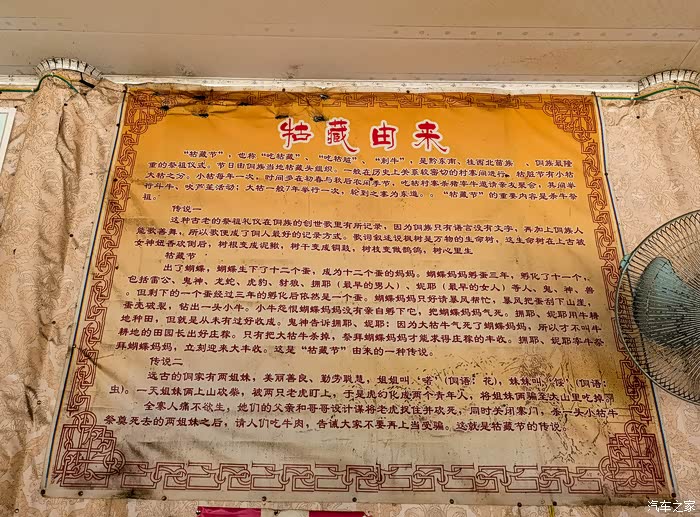 牯藏由来
“牯藏节”，也称“吃牯藏”、“吃牯脏”、“刺牛”，是黔东南、桂西北苗族、侗族最隆
重的祭祖仪式。节日由侗族当地牯藏头组织。一般在历史上关系较密切的村寨间进行。牯脏节有小牯
大牯之分。小牯每年一次，时间多在初春与秋后农闲季节，吃牯村寨杀猪宰牛邀请亲友聚会，其间举
行斗牛、吹芦笙活动；大牯一般7年举行一次，轮到之寨为东道。。“牯藏节”的重要内容是杀牛祭
祖。
传说一
这种古老的祭祖礼仪在侗族的创世歌里有所记录，因为侗族只有语言没有文字，再加上侗族人
能歌善舞，所以歌便成了侗人最好的记录方式。歌词叙述说枫树是万物的生命树，这生命树在上古被
女神妞香砍倒后，树根变成泥鳅，树干变成铜鼓，树枝变做鹡鸰，树心里生
牯藏节
出了蝴蝶，蝴蝶生下了十二个蛋，成为十二个蛋的妈妈。蝴蝶妈妈孵蛋三年，孵化了十一个，
包括雷公、鬼神、龙蛇、虎豹、豺狼、拥耶（最早的男人）、妮耶（最早的女人）等人、鬼、神、兽
。但剩下的一个蛋经过三年的孵化后依然是一个蛋。蝴蝶妈妈只好请暴风帮忙，暴风把蛋刮下山崖，
蛋壳破裂，钻出一头小牛。小牛忿恨蝴蝶妈妈没有亲自孵下它，把蝴蝶妈妈气死。拥耶、妮耶用牛耕
地种田，但就是从未有过好收成。鬼神告诉拥耶、妮耶：因为大牯牛气死了蝴蝶妈妈，所以才不叫牛
耕地的田园长出好庄稼。只有把大牯牛杀掉，祭拜蝴蝶妈妈才能求得庄稼的丰收。拥耶、妮耶宰牛祭
拜蝴蝶妈妈，立刻迎来大丰收。这是“牯藏节”由来的一种传说。
传说二
远古的侗家有两姐妹，美丽善良、勤劳聪慧，姐姐叫“喏”（侗语：花），妹妹叫（侗语：
虫）。一天姐妹俩上山砍柴，被两只老虎盯上，于是虎幻化成两个青年人，将姐妹俩骗至大山里吃掉。
全寨人痛不欲生，他们的父亲和哥哥设计谋将老虎捉住并砍死，同时关闭寨门，杀一头小牯牛
祭奠死去的两姐妹之后，请人们吃牛肉，告诫大家不要再上当受骗。这就是牯藏节的传说。
汽车之家